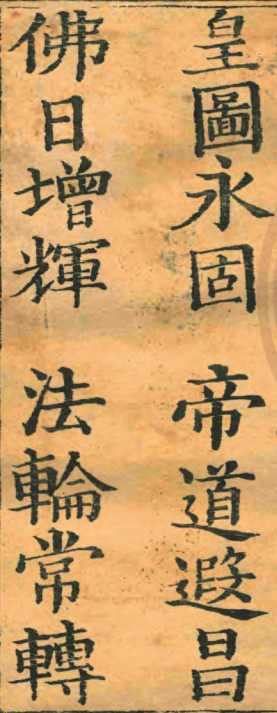 皇圖永固　帝道遐昌
佛日增輝　法輪常轉